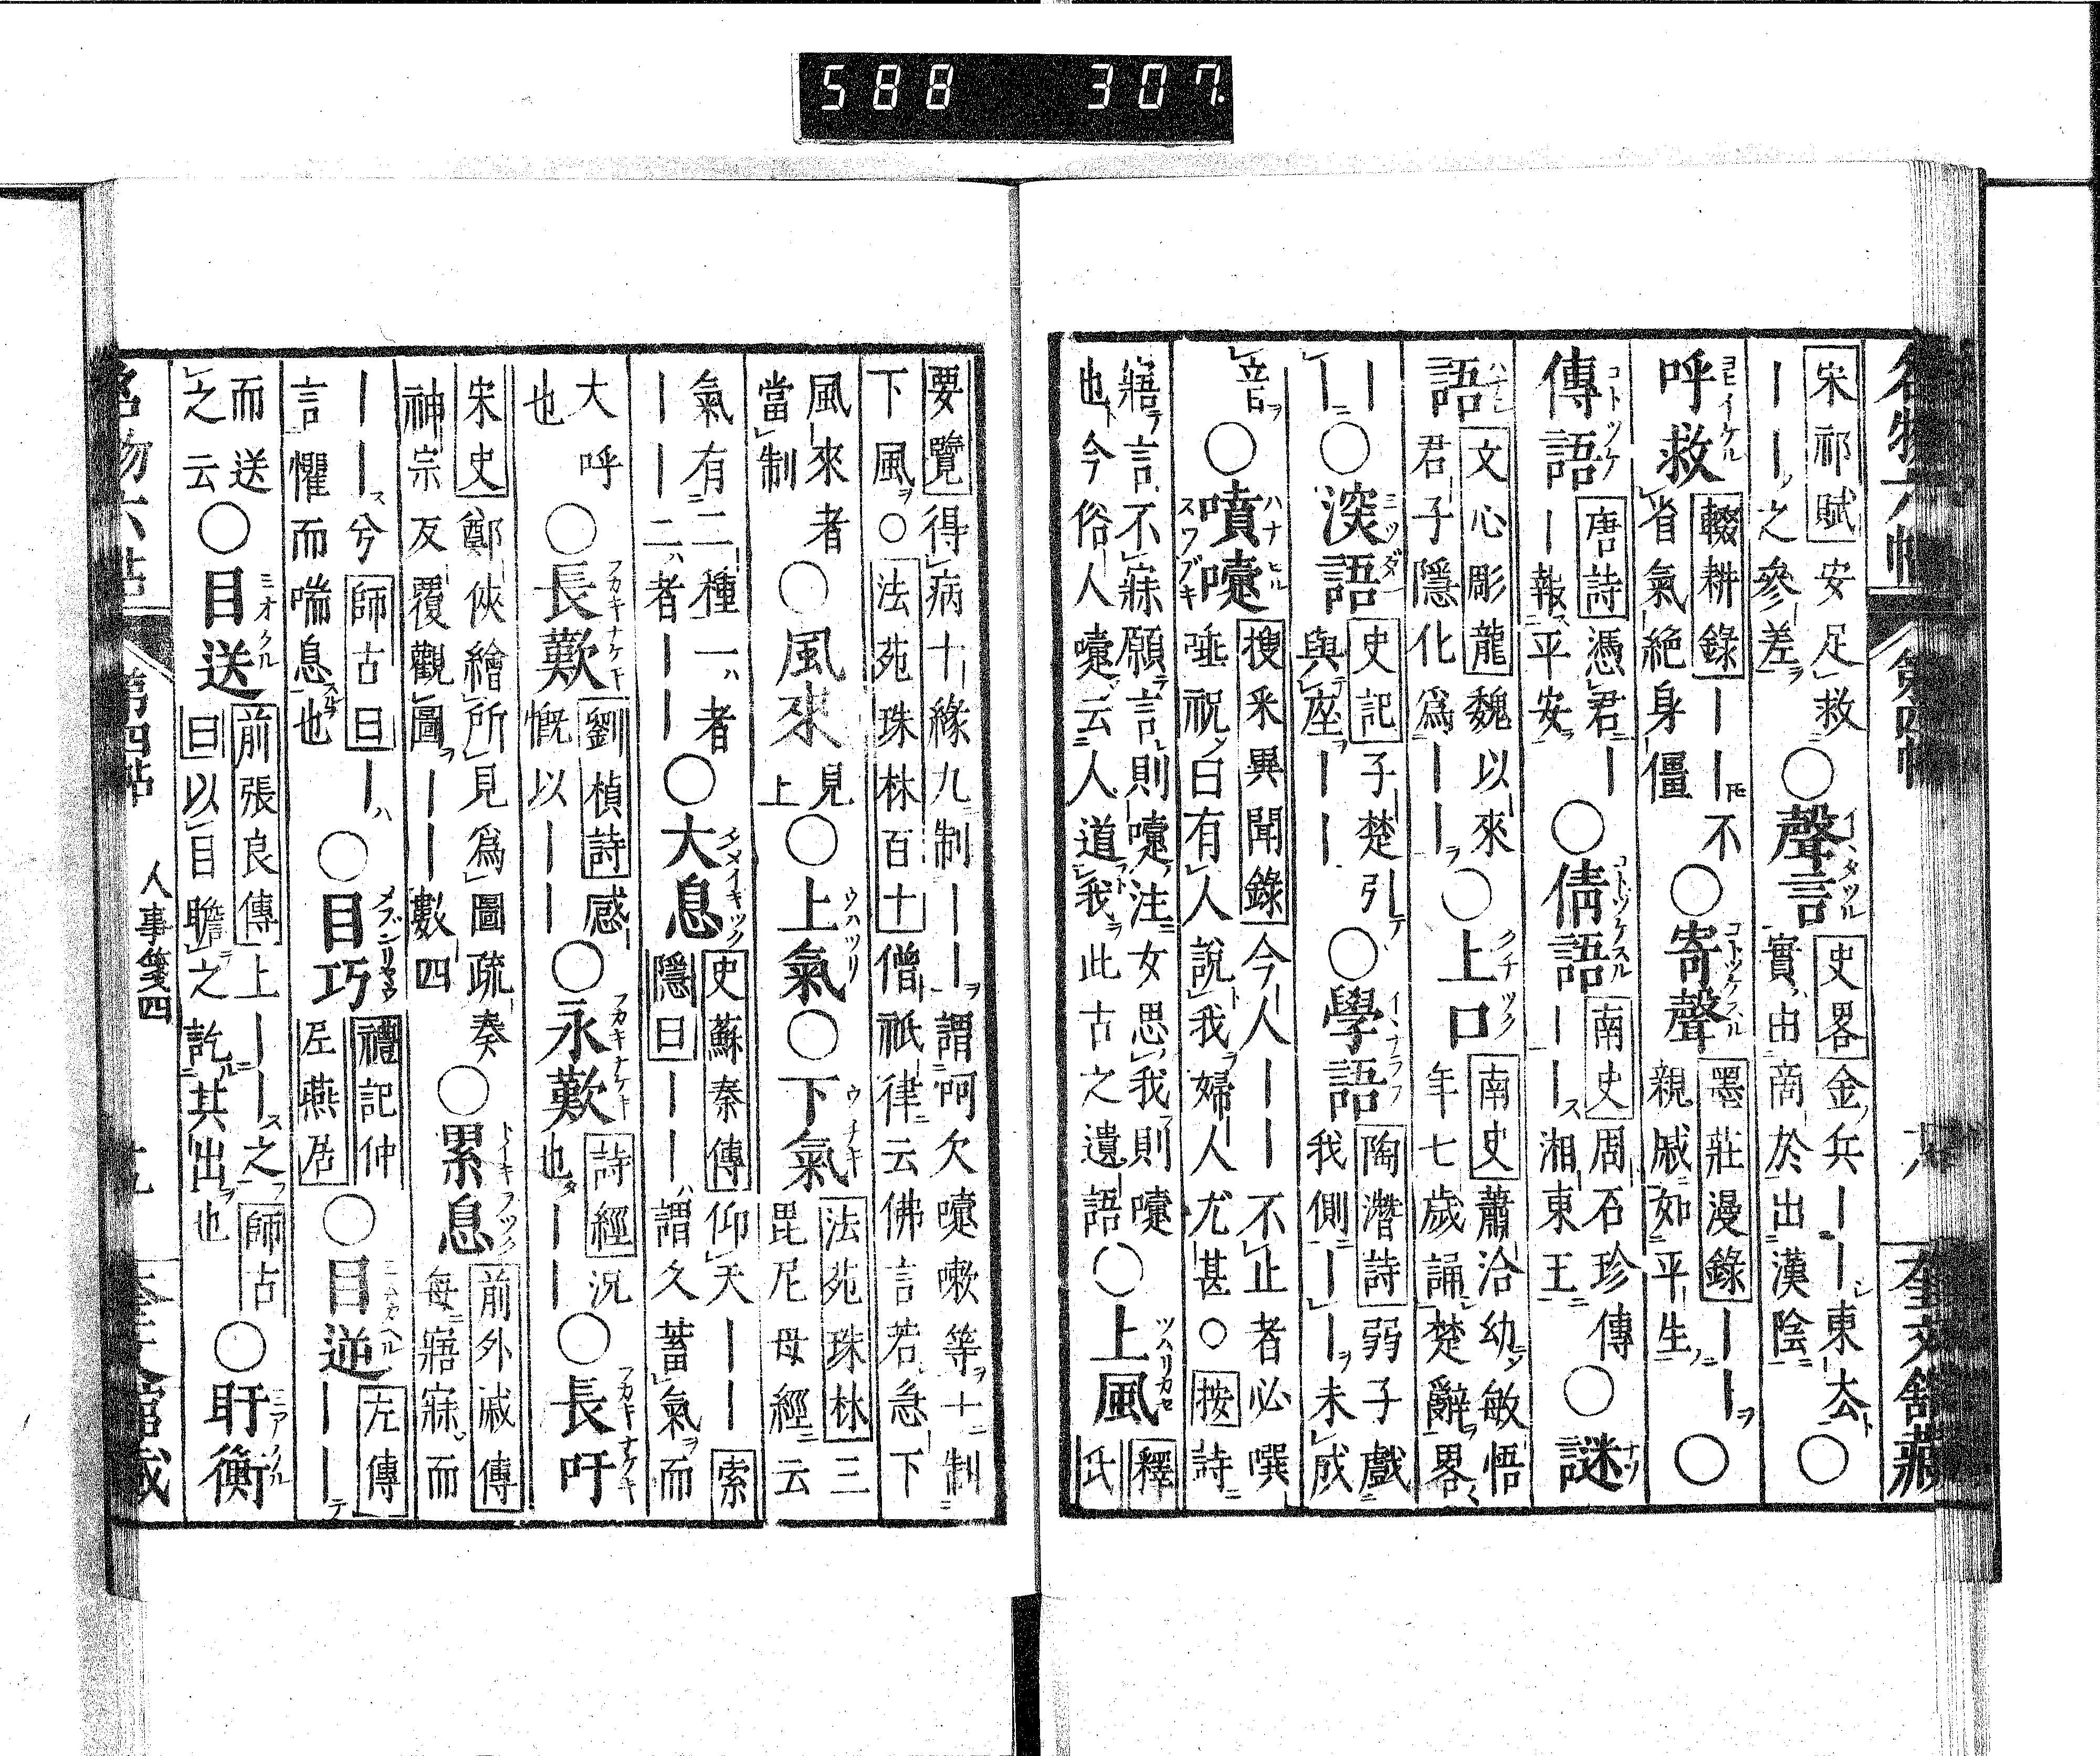 588 307
名物六帖 第四帖 奎文館藏
宋祁賦安足救
――之參差
○聲言
史畧金兵――東去
實由商於出漢陰
○
呼救
輟耕錄――不
省氣絶身僵
○寄聲
墨莊漫錄――
親戚如平生
○
傳語
唐詩憑君―
―報平安
○倩語
南史周石珍傳
――湘東王
○謎
語
文心彫龍魏以來
君子隱化爲――
○上口
南史蕭洽幼敏悟
年七歲誦楚辭畧〱
―
―
○深語
史記子楚引
與座――
○學語
陶濳詩弱子戲
我側――未成
音
○噴嚏
搜釆異聞錄今人――不止者必噀
唾祝曰有人說我婦人尤甚○按詩
寤言不寐願言則嚏注女思我則嚏
也今俗人嚏云人道我此古之遺語
○上風
釋
氏
要覽得病十緣九制――謂呵欠嚏嗽等十制
下風○法苑珠林百十僧祇律云佛言若急下
風來者
當制
○風來
見
上
○上氣○下氣
法苑珠林三
毘尼母經云
氣有二種一者
――二者――
○大息
史蘇秦傳仰天――索
隱曰――謂久蓄氣而
大呼
也
○長歎
劉楨詩感
慨以――
○永歎
詩經況
也――
○長吁
宋史鄭俠繪所見爲圖疏奏
神宗反覆觀圖――數四
○累息
前外戚傳
每寤寐而
――兮師古曰―
言懼而喘息也
○目巧
禮記仲
尼燕居
○目逆
左傳
――
而送
之云
○目送
前張良傳上――之師古
曰以目瞻之訖其出也
○盱衡
名物六帖 第四帖 人事箋四 奎文館藏